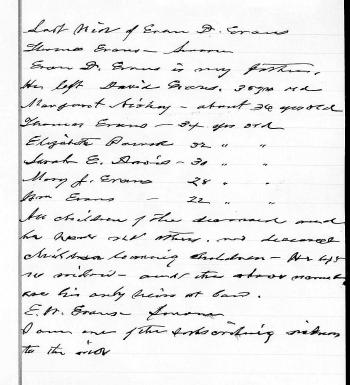 Last Will of Evan D. Evans
Thomas Evans - Sworn
Evan D. Evans is my father.
He left David Evans. 38 yrs old
Margaret - about 36 yrs old
Thomas Evans - 34 yrs old
Elizabeth 32 " "
Sarah E. Davis - 30 " "
Mary J. Evans 28 " "
Wm Evans - 22 " "
All children of the deceased and
he no others. no deceased
children leaving children - He left
no widow - and the above named
are his only heirs at law.
E. W. Evans - Sworn
I am one of the subscribing witness
to the will